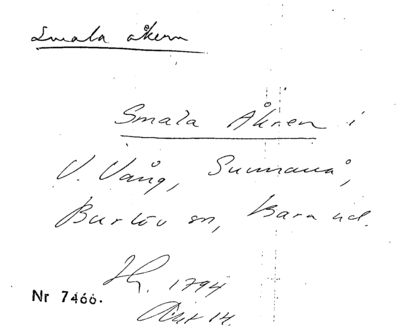 Smala åkern
Smala Åkren i
V. Vång, Sunnanå,
Burlöv sn, Bara hd.
1794
Nr 7466.
Akt 14.